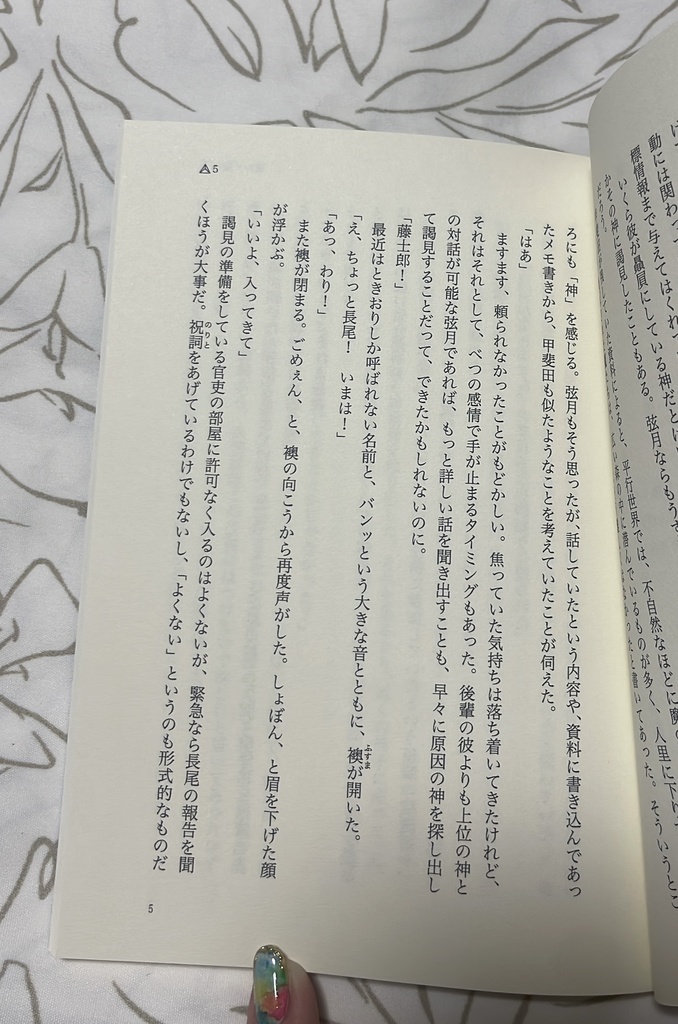 動には関わっ
標情報まで与えてはくれ
いくら彼が贔屓にしている神だと
かその神に謁見したこともある。弦月ならもう
平行世界では、不自然なほどに魔の
森の中に潜んでいるものが多く、人里に下り
と書いてあった。そういうとこ
ろにも「神」を感じる。弦月もそう思ったが、話していたという内容や、資料に書き込んであっ
たメモ書きから、甲斐田も似たようなことを考えていたことが伺えた。
「はあ」
ますます、頼られなかったことがもどかしい。焦っていた気持ちは落ち着いてきたけれど、
それはそれとして、べつの感情で手が止まるタイミングもあった。後輩の彼よりも上位の神と
の対話が可能な弦月であれば、もっと詳しい話を聞き出すことも、早々に原因の神を探し出し
て謁見することだって、できたかもしれないのに。
「藤士郎！」
最近はときおりしか呼ばれない名前と、バンッという大きな音とともに、襖が開いた。
ふすま
「え、ちょっと長尾！　いまは！」
「あっ、わり！」
また襖が閉まる。ごめぇん、と、襖の向こうから再度声がした。しょぼん、と眉を下げた顔
が浮かぶ。
「いいよ、入ってきて」
謁見の準備をしている官吏の部屋に許可なく入るのはよくないが、緊急なら長尾の報告を聞
くほうが大事だ。祝詞をあげているわけでもないし、「よくない」というのも形式的なものだ
のりと
5
5